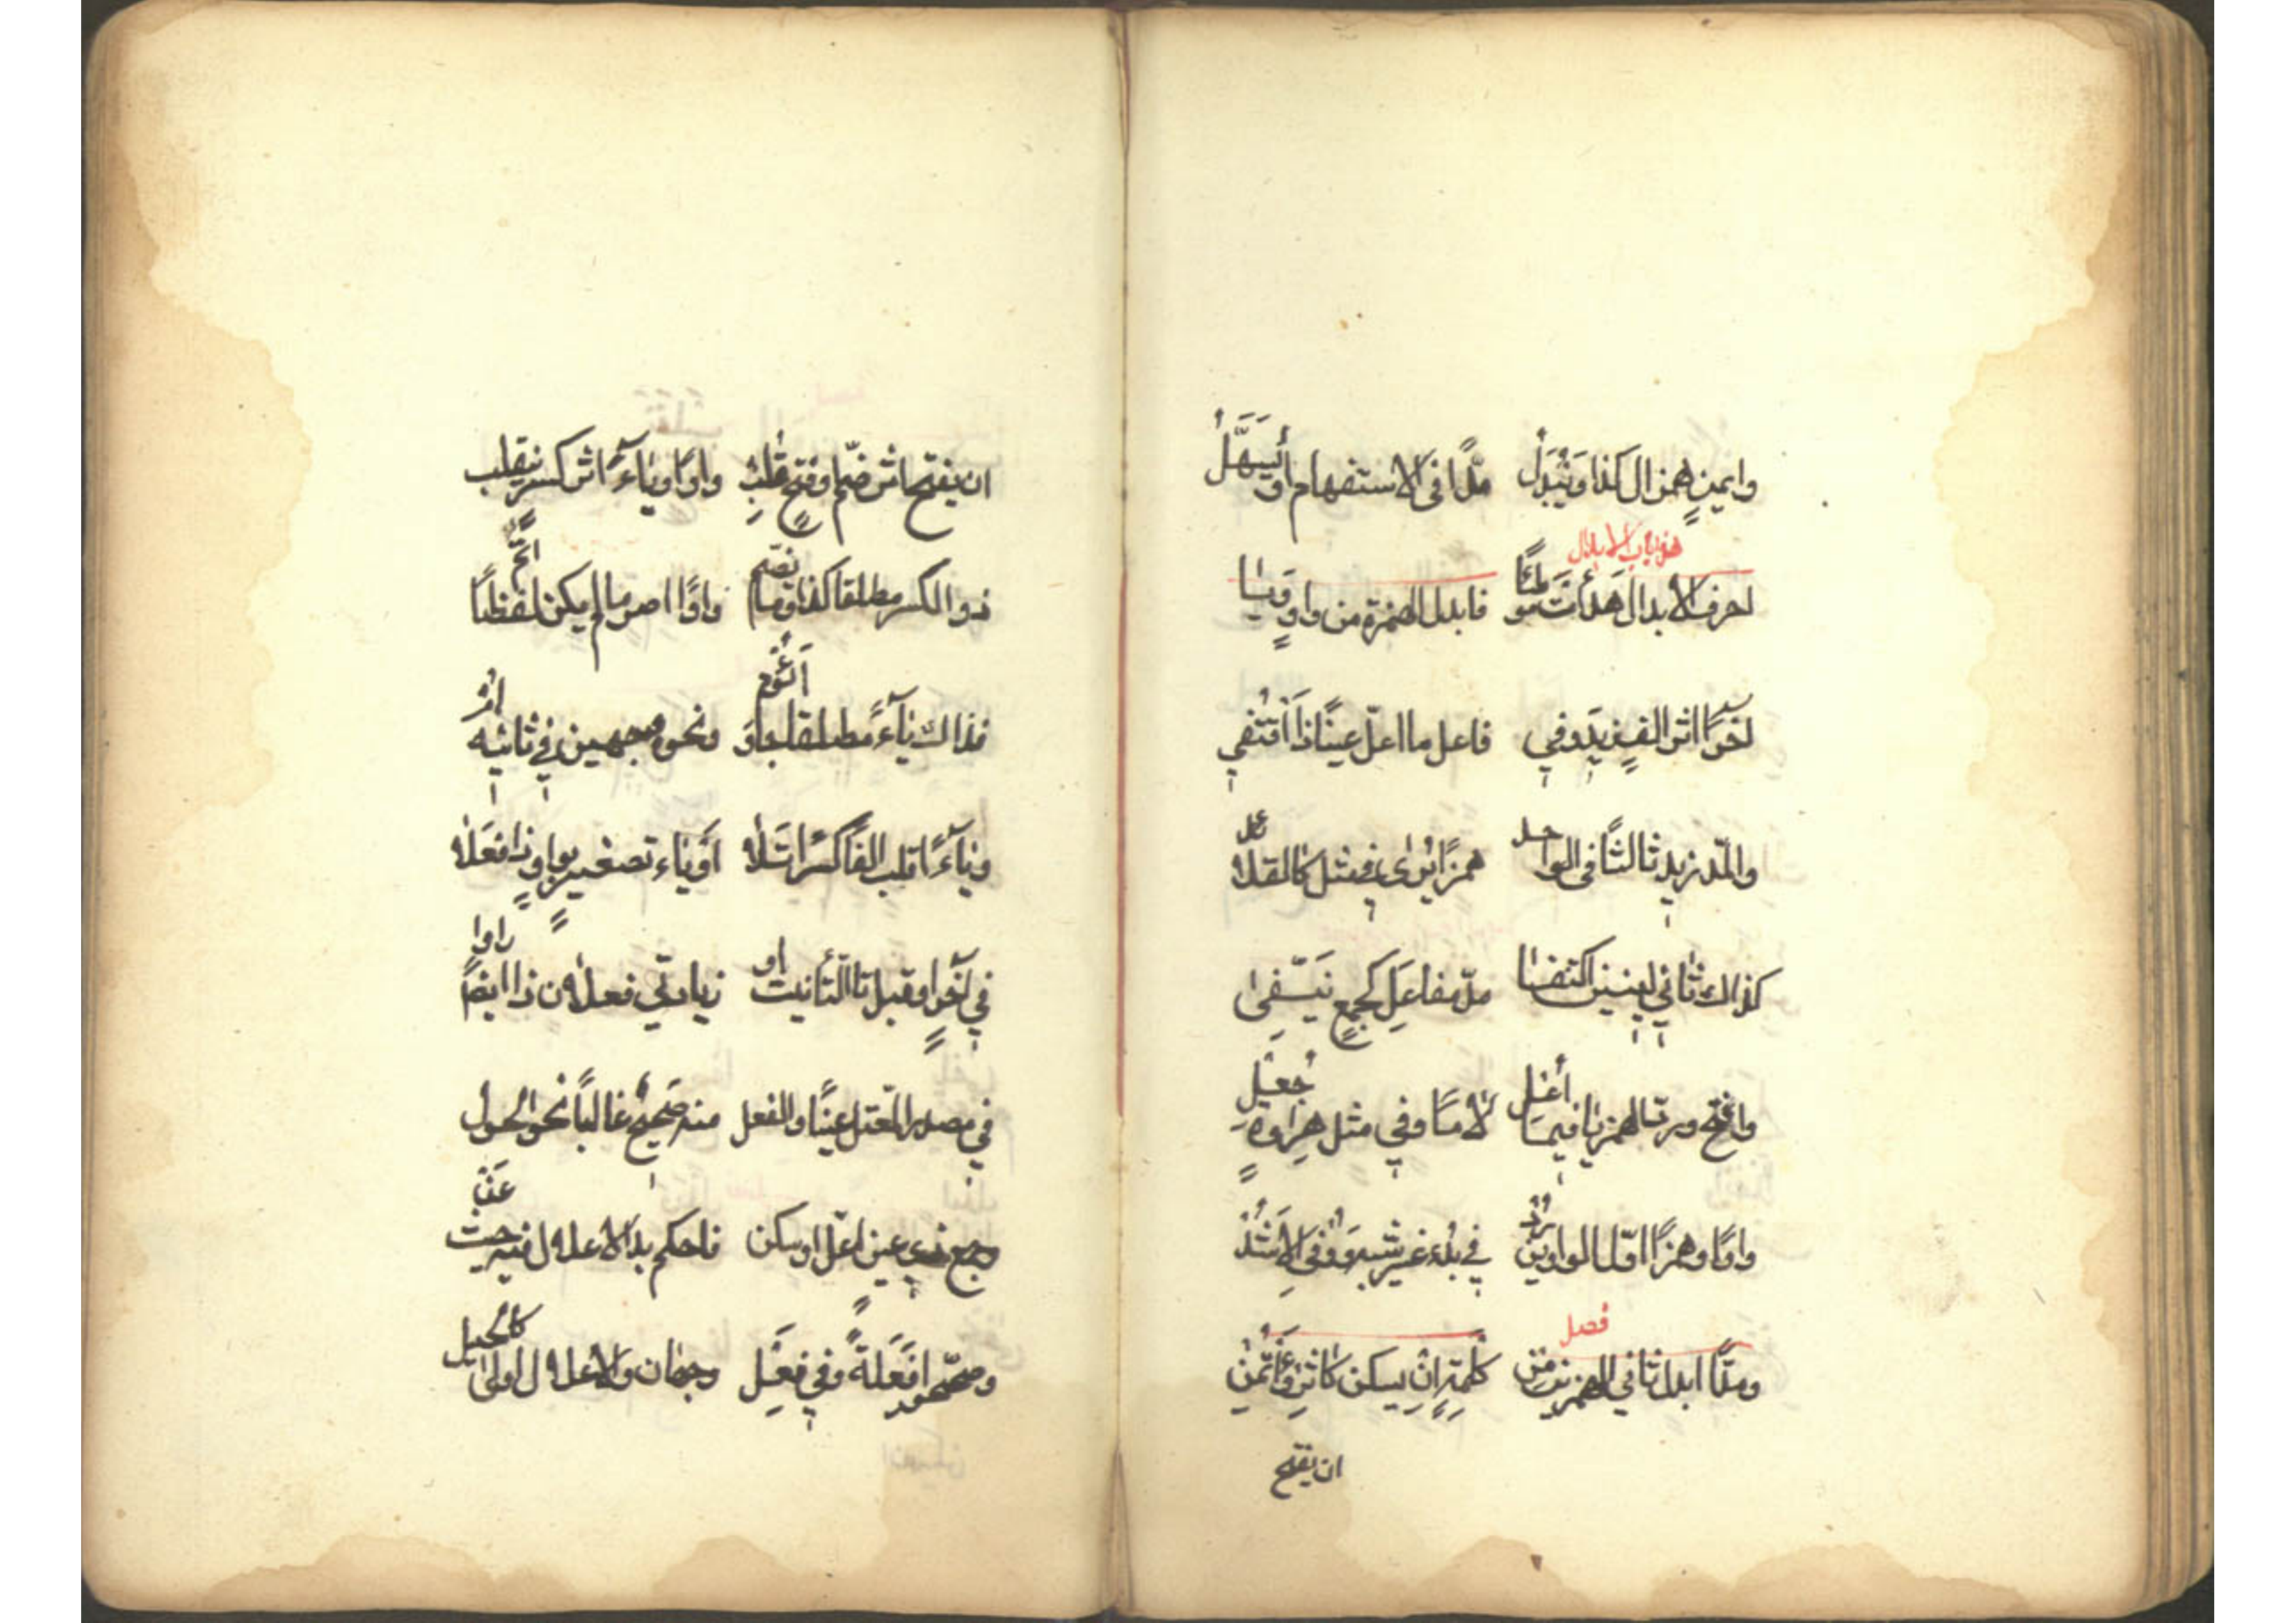 وايمن همز ال كذا ويبدل مدا في الاستفهام او يسهل
هذا باب الابدال
احرف الابدال هدأت موطئا فابدل الهمزة من واو ويا
اخرا اثر الف زيد وفي فاعل ما اعل عينا ذا اقتفي
والمد زيد ثالثا في الواحد همزا يرى في مثل كالقلائد
كذاك ثاني لينين اكتنفا مد مفاعل كجمع نيفا
وافتح ورد الهمز يا فيما اعل لاما وفي مثل هراوة جعل
واوا وهمزا اول الواوين رد في بدء غير شبه ووفي الاشد
فصل
ومدا ابدل ثاني الهمزين من كلمة ان يسكن كاثر وأتمن
ان يفتح
ان يفتح اثر ضم او فتح قلب واوا وياء اثر كسر ينقلب
ذو الكسر مطلقا كذا وما يضم واوا اصر ما لم يكن لفظا اتم
فذاك ياء مطلقا جا وأؤم ونحوه وجهين في ثانيه ام
وياء اقلب الفا كسرا تلا او ياء تصغير بواو ذا افعلا
في آخر او قبل تا التأنيث او زيادتي فعلان ذا ايضا راوا
في مصدر المعتل عينا والفعل منه صحيح غالبا نحو الحول
وجمع ذي عين اعل او سكن فاحكم بذا الاعلال فيه حيث عن
وصححوا فعلة وفي فعل وجهان والاعلال اولى كالحيل